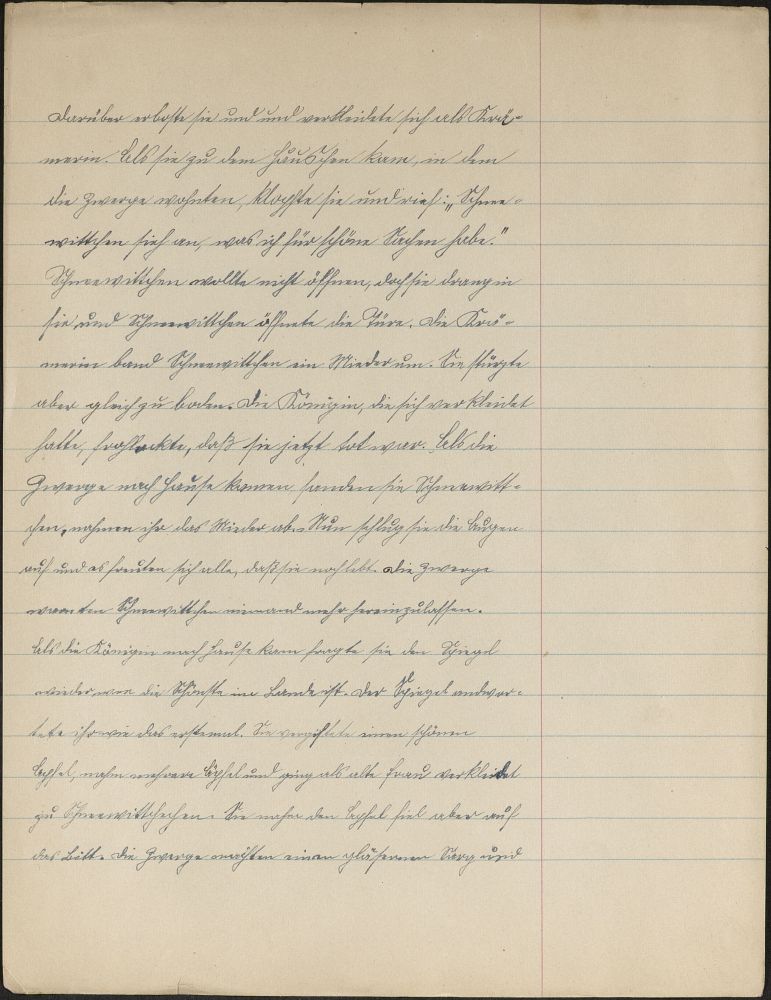 Darüber erboste sie und und verkleidete sich als Krä-
merin. Als sie zu dem Häuschen kam, in dem
die Zwerge wohnten, klopfte sie und rief: „Schnee-
wittchen sieh an, was ich für schöne Sachen habe."
Schneewittchen wollte nicht öffnen, doch sie drang in
sie und Schneewittchen öffnete die Türe. Die Krä-
merin band Schneewittchen ein Mieder um. Sie stürzte
aber gleich zu boden. Die Königin, die sich verkleidet
hatte, frohlockte, daß sie jetzt tot war. Als die
Zwerge nach Hause kamen fanden sie Schneewitt-
chen, nahmen ihr das Mieder ab. Nun schlug sie die Augen
auf und es freuten sich alle, daß sie noch lebt. Die Zwerge
warnten Schneewittchen niemand mehr hereinzulassen.
Als die Königin nach Hause kam fragte sie den Spiegel
wieder wer die Schönste im Lande ist. Der Spiegel andwor-
tete ihr wie das erstemal. Sie vergiftete einen schönen
Apfel, nahm mehrere Äpfel und ging als alte Frau verkleidet
zu Sie nahm den Apfel fiel aber auf
das Bett. Die Zwerge machten einen gläsernen Sarg und